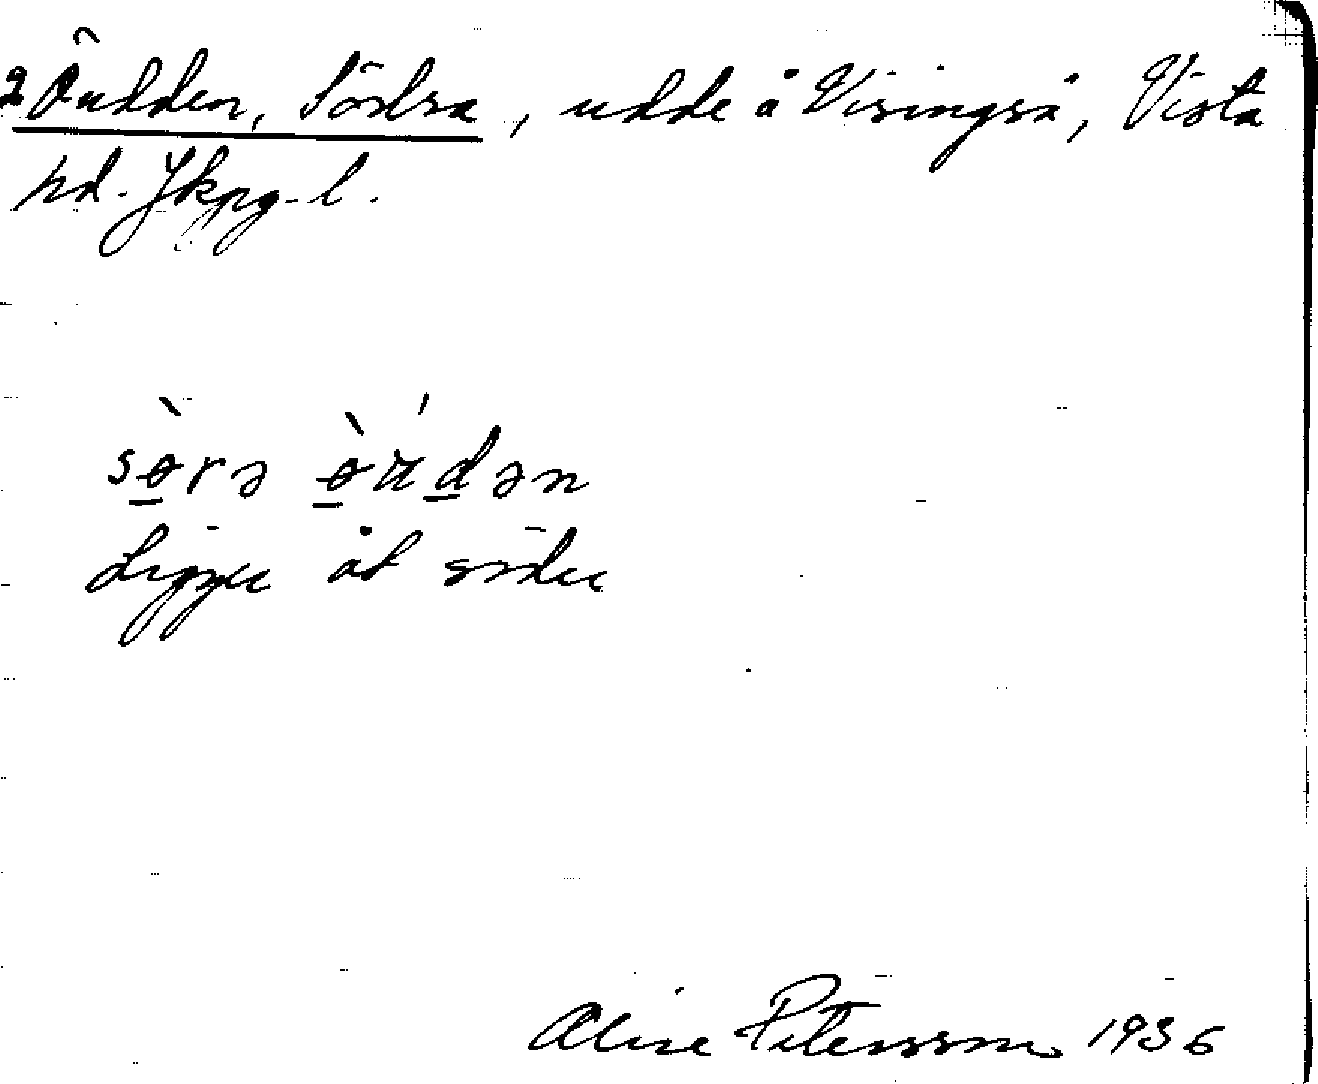 2 Öudden, Södra, udde å Visingsö, Vista
hd. Jkpg. l.
sɵ̀rə ɵ̀ʉ́dən
Ligger åt söder
Alice Petersson 1936